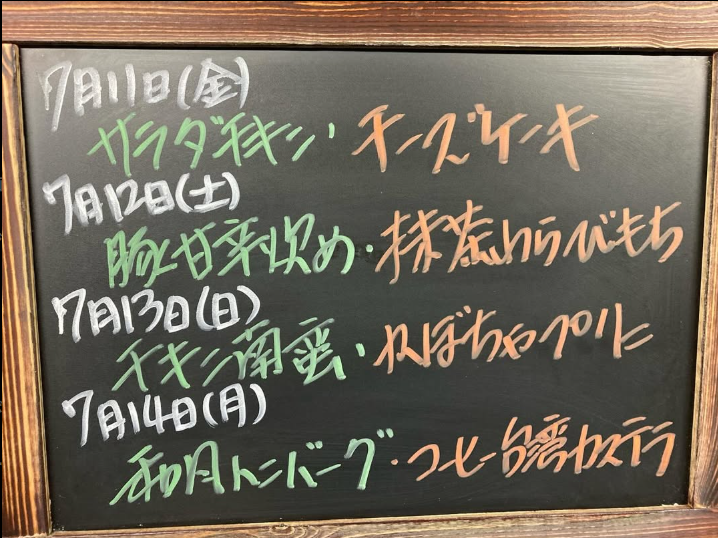 7月11日(金)
サラダチキン・チーズケーキ
7月12日(土)
豚甘辛炒め・抹茶わらびもち
7月13日(日)
チキン南蛮・かぼちゃプリン
7月14日(月)
和風トンバーグ・コーヒー台湾カステラ